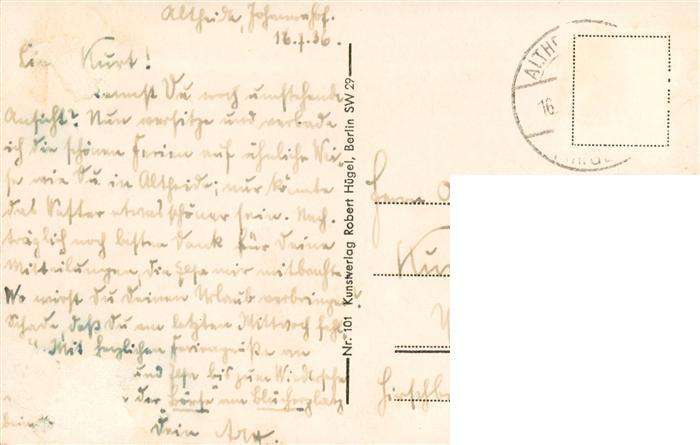 Altheide, Johannishof.
16.7.36.
Kurt!
Kennst Du noch umstehende
Ansicht? Nun versitze und verbade
ich die schönen Ferien auf ähnliche Wei-
se wie Du in Altheide; nur könnte
das Wetter etwas schöner sein. Nach-
träglich noch besten Dank für Deine
Mitteilungen, die Ilse mir mitbrachte.
Wo wirst Du Deinen Urlaub verbringen?
Schade, daß Du am letzten Mittwoch
Mit herzlichen Feriengrüße an
und Ilse bis zum Wiedersehen
der Börse am Blücherplatz
Dein
Nr. 101 Kunstverlag Robert Hügel, Berlin SW 29
ALTH
16.
Herrn
Kur
Hirschb